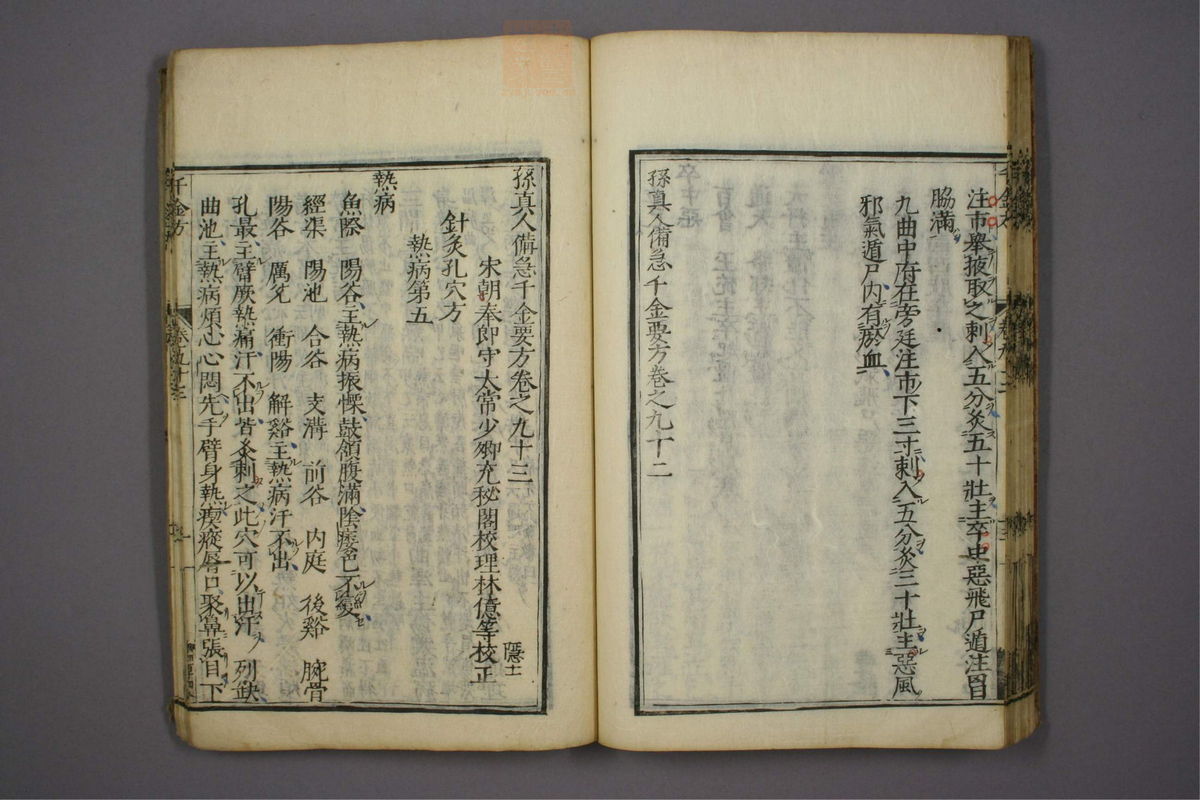 注市舉掖取之刺入五分灸五十壯主卒中惡飛尸遁注胷
脇滿
九曲中府在旁廷注市下三寸刺入五分灸三十壯主惡風
邪氣遁尸内有瘀血
孫真人備急千金要方卷之九十二
孫真人備急千金要方卷之九十三 隱士
宋朝奉郎守太常少卿充秘閣校理林億等校正
針灸孔穴方
熱病第五
熱病
魚際 陽谷主熱病振慄鼓頷腹滿陰痿色不變
經渠 陽池 合谷 支溝 前谷 内庭 後谿 腕骨
陽谷 厲兌 衝陽 解谿主熱病汗不出
孔最主臂厥熱痛汗不出皆灸刺之此穴可以出汗 列缺
曲池主熱病煩心心悶先手臂身熱瘈瘲唇口聚鼻張目下
千金方